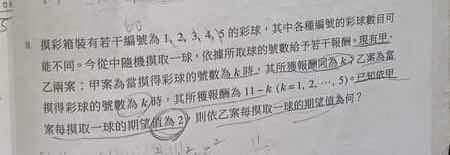 8. 摸彩箱裝有若干編號為 1, 2, 3, 4, 5 的彩球，其中各種編號的彩球數目可
能不同。今從中隨機摸取一球，依據所取球的號數給予若干報酬。現有甲、
乙兩案：甲案為當摸得彩球的號數為 k 時，其所獲報酬同為 k；乙案為當
摸得彩球的號數為 k 時，其所獲報酬為 11－k (k＝1, 2, …, 5)。已知依甲
案每摸取一球的期望值為 2，則依乙案每摸取一球的期望值為何？
11